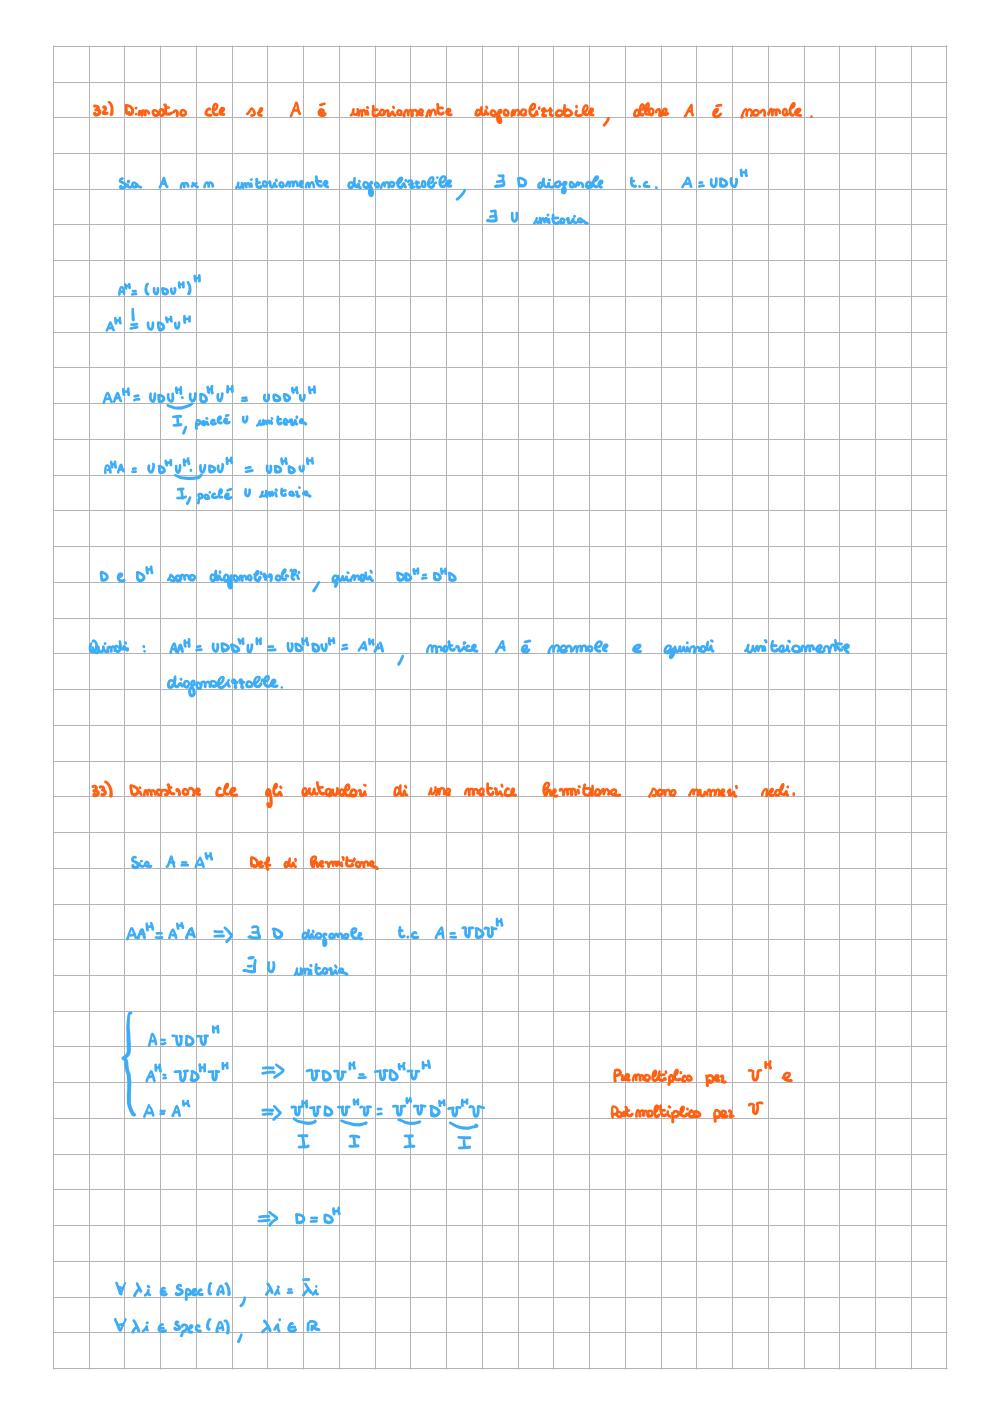 32) Dimostro che se A é unitariamente diagonalizzabile, allora A é normale.
Sia A n×n unitariamente diagonalizzabile, ∃ D diagonale t.c. A = UDU^H
∃ U unitaria
A^H = (UDU^H)^H
A^H = UD^HU^H
AA^H = UDU^H · UD^HU^H = UDD^HU^H
I, poiché U unitaria
A^HA = UD^HU^H · UDU^H = UD^HDU^H
I, poiché U unitaria
D e D^H sono diagonalizzabili, quindi DD^H = D^HD
Quindi : AA^H = UDD^HU^H = UD^HDU^H = A^HA, matrice A é normale e quindi unitaiamente
diagonalizzabile.
33) Dimostrare che gli autovalori di una matrice hermitiana sono numeri reali.
Sia A = A^H Def di hermitiana
AA^H = A^HA => ∃ D diagonale t.c A = UDU^H
∃ U unitaria
A = UDU^H
A^H = UD^HU^H => UDU^H = UD^HU^H Premoltiplico per U^H e
A = A^H => U^HUDU^HU = U^HUD^HU^HU Postmoltiplico per U
I I I I
=> D = D^H
∀ λi ∈ Spec(A), λi = λ̄i
∀ λi ∈ Spec(A), λi ∈ ℝ